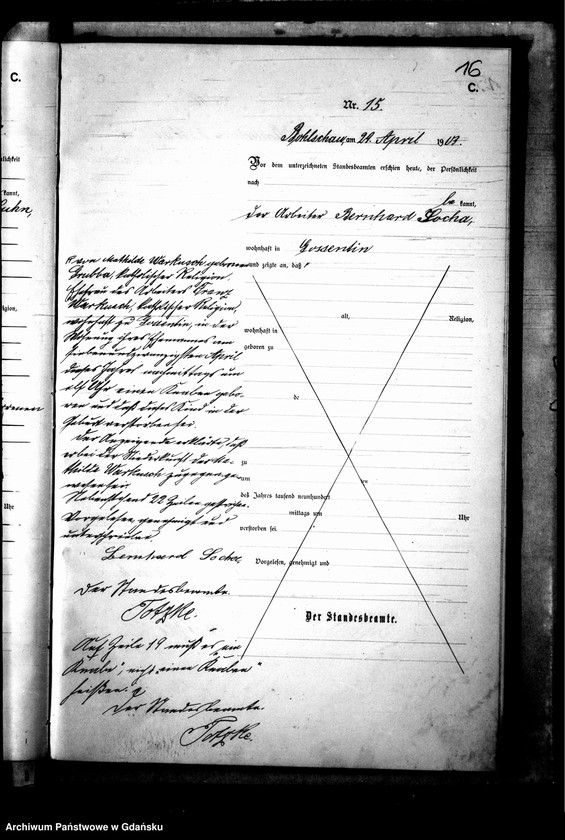 C.
16
C.
Nr. 15.
am 29. April 1907.
Vor dem unterzeichneten Standesbeamten erschien heute, der Persönlichkeit
nach
be kannt,
der Arbeiter Bernhard Socha,
wohnhaft in Gossentin
und zeigte an, daß
von Mathilde Warkusch, geborenen
Grubba, katholischer Religion,
Ehefrau des Arbeiters Franz
Warkusch, katholischer Religion,
wohnhaft zu Gossentin, in der
Wohnung ihres Ehemannes am
siebenundzwanzigsten April
dieses Jahres nachmittags um
elf Uhr einen Knaben gebo-
ren und daß dieses Kind in der
Geburt verstorben sei.
Der Anzeigende erklärte, daß
er bei der Niederkunft der Ma-
thilde Warkusch zugegen ge-
wesen sei.
Nebenstehend 22 Zeilen gestrichen.
Vorgelesen, genehmigt und
unterschrieben
Bernhard Socha
Der Standesbeamte.
Totzke.
Auf Zeile 19 muß es „ein
Knabe", nicht „einen Knaben"
heißen.
Der Standesbeamte.
Totzke
alt, Religion,
wohnhaft in
geboren zu
de
zu
am
des Jahres tausend neunhundert
mittags um Uhr
verstorben sei.
Vorgelesen, genehmigt und
Der Standesbeamte.
kannt,
Uhr
Archiwum Państwowe w Gdańsku